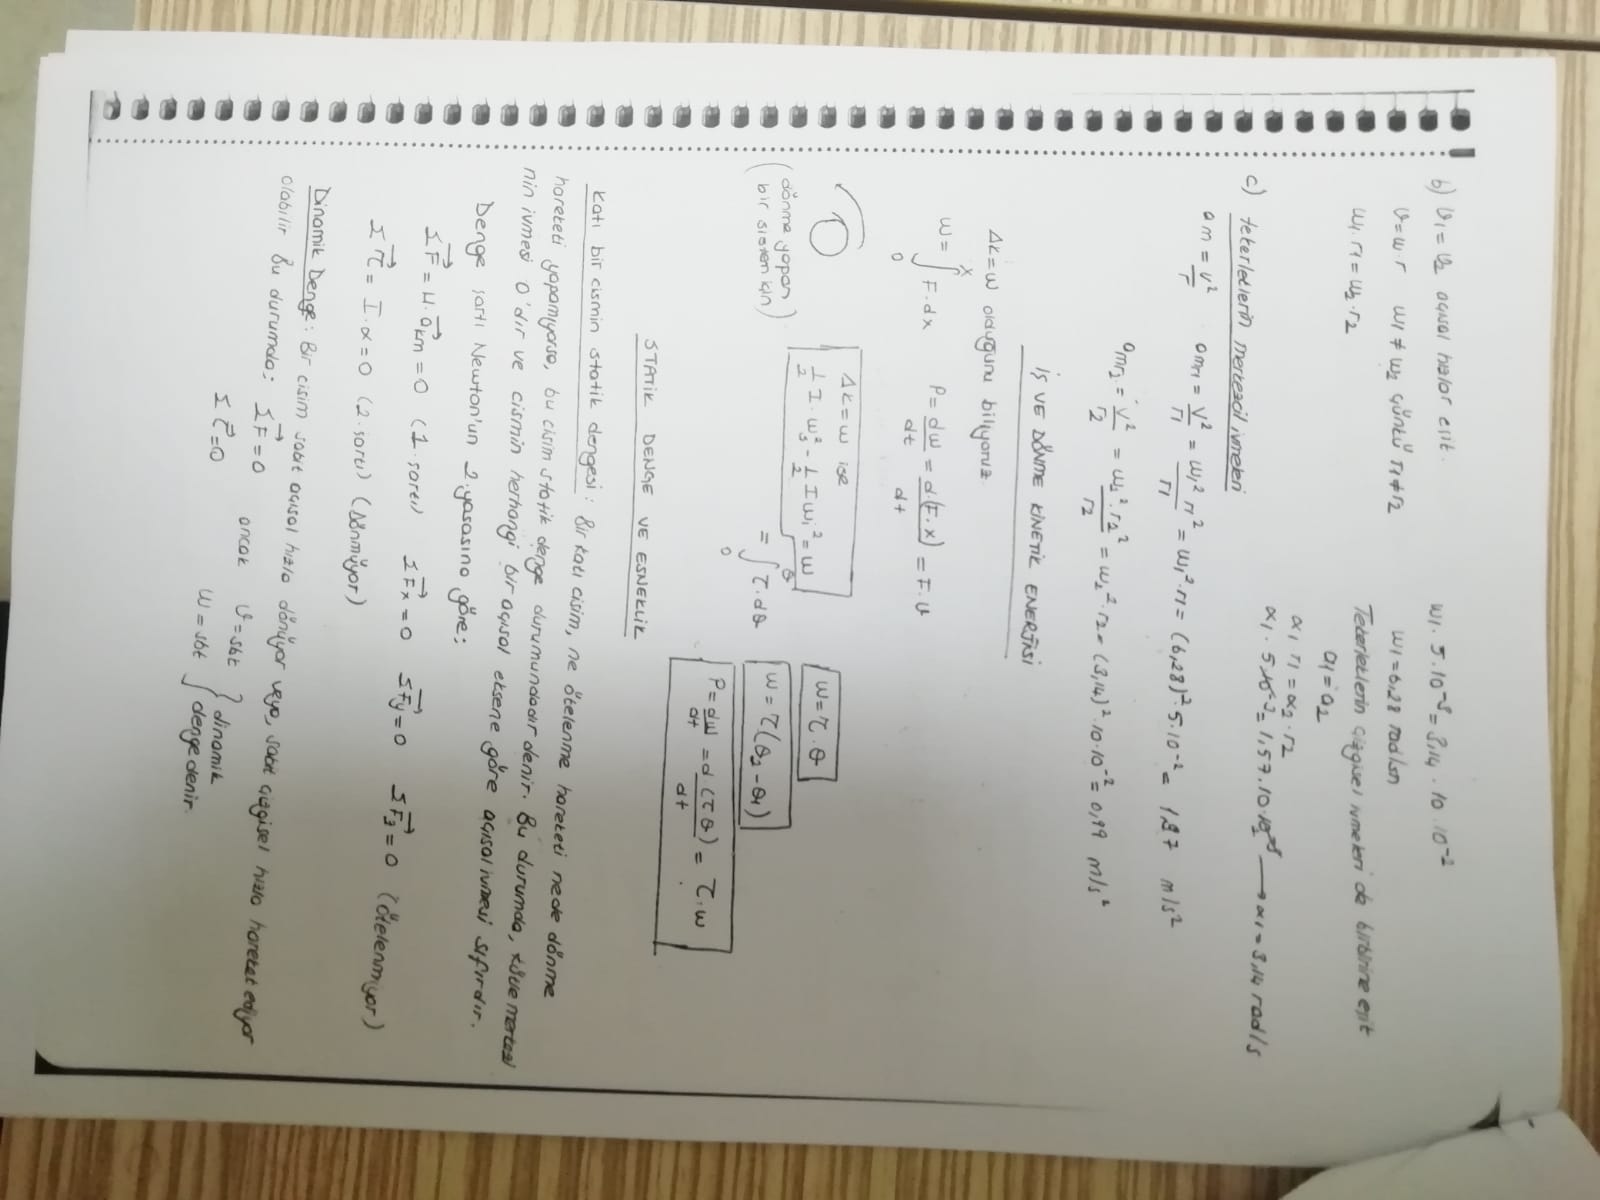 b) υ1 = υ2 açısal hızlar eşit.
υ = w.r   w1 ≠ w2 çünkü r1 ≠ r2
w1.r1 = w2.r2
w1. 5.10⁻³ = 3,14 . 10 . 10⁻²
w1 = 6,28 rad/sn
Tekerleklerin çizgisel ivmeleri de birbirine eşit
a1 = a2
α1 r1 = α2.r2
α1 . 5.10⁻³ = 1,57.10.10⁻³ → α1 = 3,14 rad/s
c) tekerleklerin merkezcil ivmeleri
am = v²/r   amr1 = v²/r1 = w1² r1²/r1 = w1².r1 = (6,28)².5.10⁻² = 1,97 m/s²
amr2 = v²/r2 = w2².r2²/r2 = w2².r2 = (3,14)².10.10⁻² = 0,99 m/s²
İŞ VE DÖNME KİNETİK ENERJİSİ
Δk = w olduğunu biliyoruz.
w = ∫₀ˣ F.dx   P = dw/dt = d.(F.x)/dt = F.υ
Δk = w ise
1/2 I.ws² - 1/2 I wi² = w
= ∫₀^θ τ.dθ
(dönme yapan
bir sistem için)
w = τ.θ
w = τ(θ2 - θ1)
P = dw/dt = d.(τθ)/dt = τ.w
STATİK DENGE VE ESNEKLİK
Katı bir cismin statik dengesi : Bir katı cisim, ne ötelenme hareketi nede dönme
hareketi yapamıyorsa, bu cisim statik denge durumundadır denir. Bu durumda, kütle merkezi
nin ivmesi 0'dır ve cismin herhangi bir açısal eksene göre açısal ivmesi sıfırdır.
Denge şartı Newton'un 2.yasasına göre;
Σ F⃗ = M.a⃗km = 0 (1.şartı)   Σ F⃗x = 0   Σ F⃗y = 0   Σ F⃗z = 0 (ötelenmiyor)
Σ τ⃗ = I.α = 0 (2.şartı) (Dönmüyor)
Dinamik Denge : Bir cisim sabit açısal hızla dönüyor veya, sabit çizgisel hızla hareket ediyor
olabilir Bu durumda; Σ F⃗ = 0   ancak   υ = sbt } dinamik
Σ τ⃗ = 0   w = sbt } denge denir.